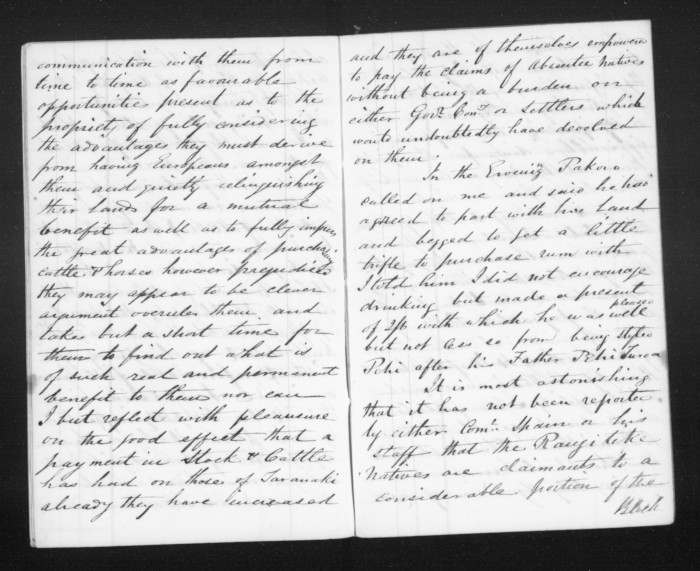 communication with them from
time to time as favourable
opportunities present as to the
propriety of fully considering
the advantages they must derive
from having Europeans amongst
them and quietly relinquishing
their lands for a mutual
benefit as well as to fully impress
the great advantages of purchasing
cattle & horses however prejudiced
they may appear to be clever
argument overrules them and
takes but a short time for
them to find out what is
of such real and permanent
benefit to them nor can
I but reflect with pleasure
on the good effect that a
payment in Stock & Cattle
has had on those of Taranaki
already they have increased
and they are of themselves empowered
to pay the claims of absentee Natives
without being a burden on
either Govt. Comy. or Settlers which
would undoubtedly have devolved
on them.
In the Evening Pakoro
called on me and said he had
agreed to part with his Land
and begged to get a little
trifle to purchase rum with
I told him I did not encourage
drinking but made a present
of 2/- with which he was well pleased
but not less so from being styled
Pehi after his Father Pehi Turoa
It is most astonishing
that it has not been reported
by either Comr. Spain or his
Staff that the Rangitike
Natives are claimants to a
considerable portion of the
Block